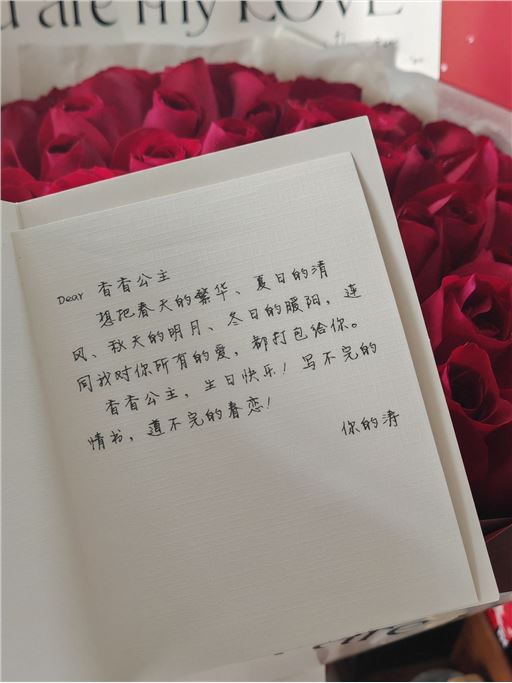 u are my LOVE
Dear 香香公主
想把春天的繁华、夏日的清
风、秋天的明月、冬日的暖阳，连
同我对你所有的爱，都打包给你。
香香公主，生日快乐！写不完的
情书，道不完的眷恋！
你的涛